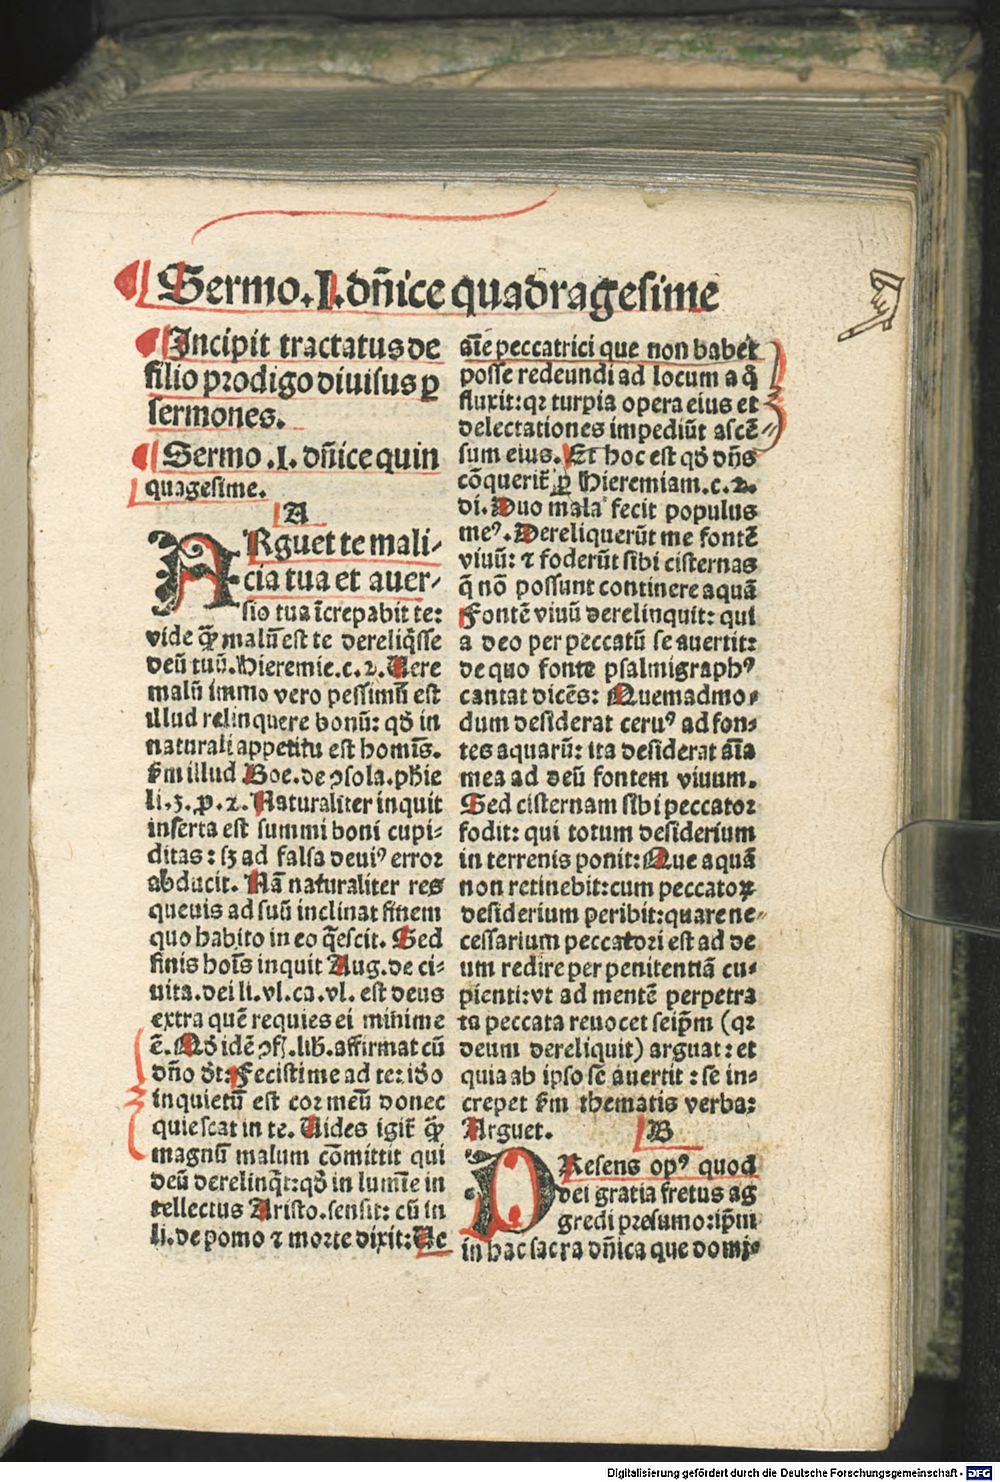 Sermo.I.dn̄ice quadragesime
Incipit tractatus de
filio prodigo diuisus ꝑ
sermones.
Sermo .I. dn̄ice quin
quagesime.
A
ARguet te mali-
cia tua et auer-
sio tua īcrepabit te:
vide qꝫ malū est te dereliq̄sse
deū tuū. Hieremie.c.2. Uere
malū immo vero pessimū est
illud relinquere bonū: qđ in
naturali appetitu est homīs.
ẜm illud Boe.de ꝯsola.phie
li.3.ꝓ.2. Naturaliter inquit
inserta est summi boni cupi-
ditas: sꝫ ad falsa deuiꝰ error
abducit. Nā naturaliter res
queuis ad suū inclinat finem
quo habito in eo q̄escit. Sed
finis hoīs inquit Aug.de ci-
uita.dei li.vl.ca.vl. est deus
extra quē requies ei minime
ē. Qđ idē ꝯf.lib. affirmat cū
dn̄o đt: Fecisti me ad te: iđo
inquietū est cor meū donec
quiescat in te. Uides igit̃ qꝫ
magnū malum cōmittit qui
deū derelinq̄t: qđ in lumīe in
tellectus Aristo.sensit: cū in
li.de pomo ⁊ morte dixit: Ue
aīe peccatrici que non habet
posse redeundi ad locum a q̄
fluxit: qꝛ turpia opera eius et
delectationes impediūt ascē-
sum eius. Et hoc est qđ dn̄s
cōquerit̃ ꝑ Hieremiam.c.2.
di. Duo mala fecit populus
meꝰ. Dereliquerūt me fontē
viuū: ⁊ foderūt sibi cisternas
q̄ nō possunt continere aquā
Fontē viuū derelinquit: qui
a deo per peccatū se auertit:
de quo fonte psalmigraphꝰ
cantat dicēs: Quemadmo-
dum desiderat ceruꝰ ad fon-
tes aquarū: ita desiderat aīa
mea ad deū fontem viuum.
Sed cisternam sibi peccator
fodit: qui totum desiderium
in terrenis ponit: Que aquā
non retinebit: cum peccatoꝝ
desiderium peribit: quare ne-
cessarium peccatori est ad de
um redire per penitentiā cu-
pienti: vt ad mentē perpetra
ta peccata reuocet seip̄m (qꝛ
deum dereliquit) arguat: et
quia ab ipso se auertit: se in-
crepet ẜm thematis verba:
Arguet.
B
PResens opꝰ quod
dei gratia fretus ag
gredi presumo: ip̄m
in hac sacra dn̄ica que domi-
Digitalisierung gefördert durch die Deutsche Forschungsgemeinschaft - DFG